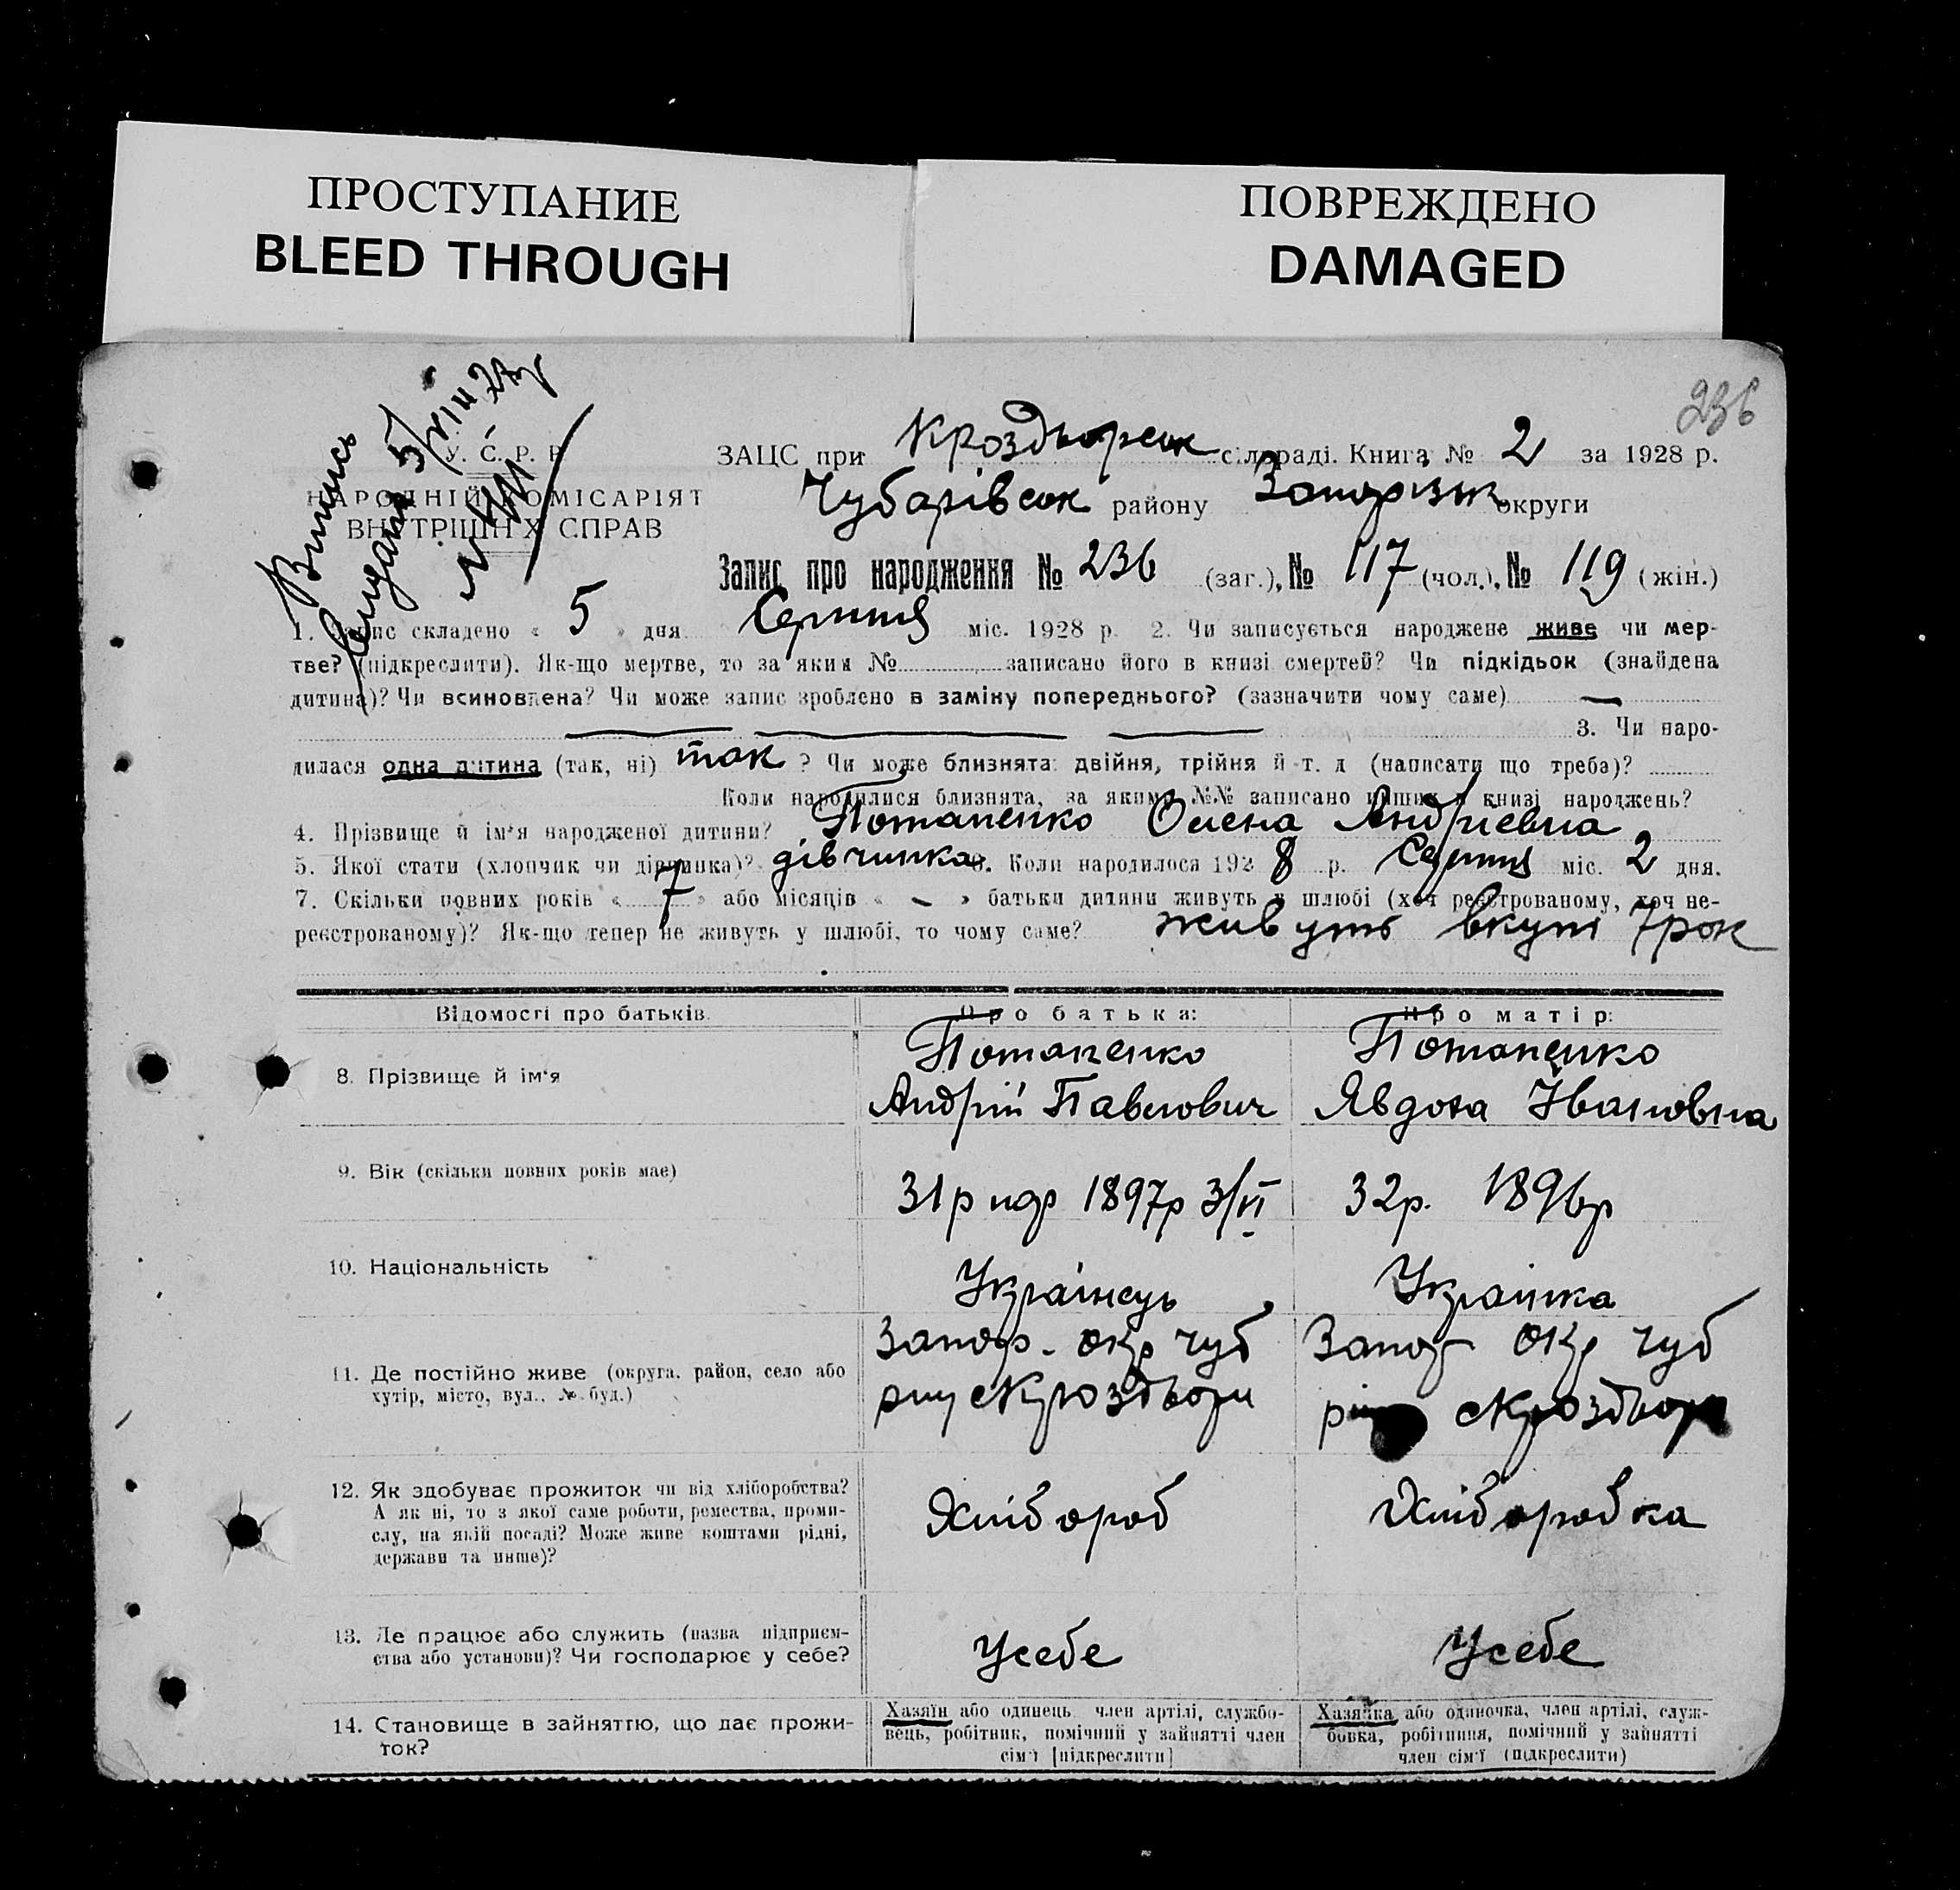 ПРОСТУПАНИЕ
BLEED THROUGH
ПОВРЕЖДЕНО
DAMAGED
236
Випись
видана 5/VIII
У. С. Р. Р.
НАРОДНІЙ КОМІСАРІЯТ
ВНУТРІШНІХ СПРАВ
ЗАЦС при Кроздворськ сільраді. Книга № 2 за 1928 р.
Чубарівськ району Запорізьк округи
Запис про народження № 236 (заг.), № 117 (чол.), № 119 (жін.)
1. Запис складено « 5 » дня Серпня міс. 1928 р. 2. Чи записується народжене живе чи мер-
тве? (підкреслити). Як-що мертве, то за яким № записано його в книзі смертей? Чи підкідьок (знайдена
дитина)? Чи всиновлена? Чи може запис зроблено в заміну попереднього? (зазначити чому саме) —
3. Чи наро-
дилася одна дитина (так, ні) так ? Чи може близнята: двійня, трійня й т. д (написати що треба)?
Коли народилися близнята, за якими №№ записано инших в книзі народжень?
4. Прізвище й ім'я народженої дитини? Потапенко Олена Андріевна
5. Якої стати (хлопчик чи дівчинка)? дівчинка 6. Коли народилося 1928 р. Серпня міс. 2 дня.
7. Скільки повних років « 7 » або місяців « – » батьки дитини живуть у шлюбі (хоч реєстрованому, хоч не-
реєстрованому)? Як-що тепер не живуть у шлюбі, то чому саме? живуть вкупі 7 рок
Відомості про батьків. Про батька: Про матір:
8. Прізвище й ім'я Потапенко Андрій Павлович Потапенко Явдоха Івановна
9. Вік (скільки повних років має) 31 р нар 1897р 3/VI 32р. 1896р
10. Національність Українець Українка
11. Де постійно живе (округа, район, село або
хутір, місто, вул., № буд.)
Запор. окр Чуб
с Кроздвори
Запор окр Чуб
с Кроздвори
12. Як здобуває прожиток чи від хліборобства?
А як ні, то з якої саме роботи, ремества, проми-
слу, на якій посаді? Може живе коштами рідні,
держави та инше)?
Хлібороб
Хліборобка
13. Де працює або служить (назва підприєм-
ства або установи)? Чи господарює у себе?
Усебе
Усебе
14. Становище в зайняттю, що дає прожи-
ток?
Хазяїн або одинець, член артілі, службо-
вець, робітник, помічний у зайнятті член
сім'ї [підкреслити]
Хазяйка або одиночка, член артілі, служ-
бовка, робітниця, помічний у зайнятті
член сім'ї (підкреслити)